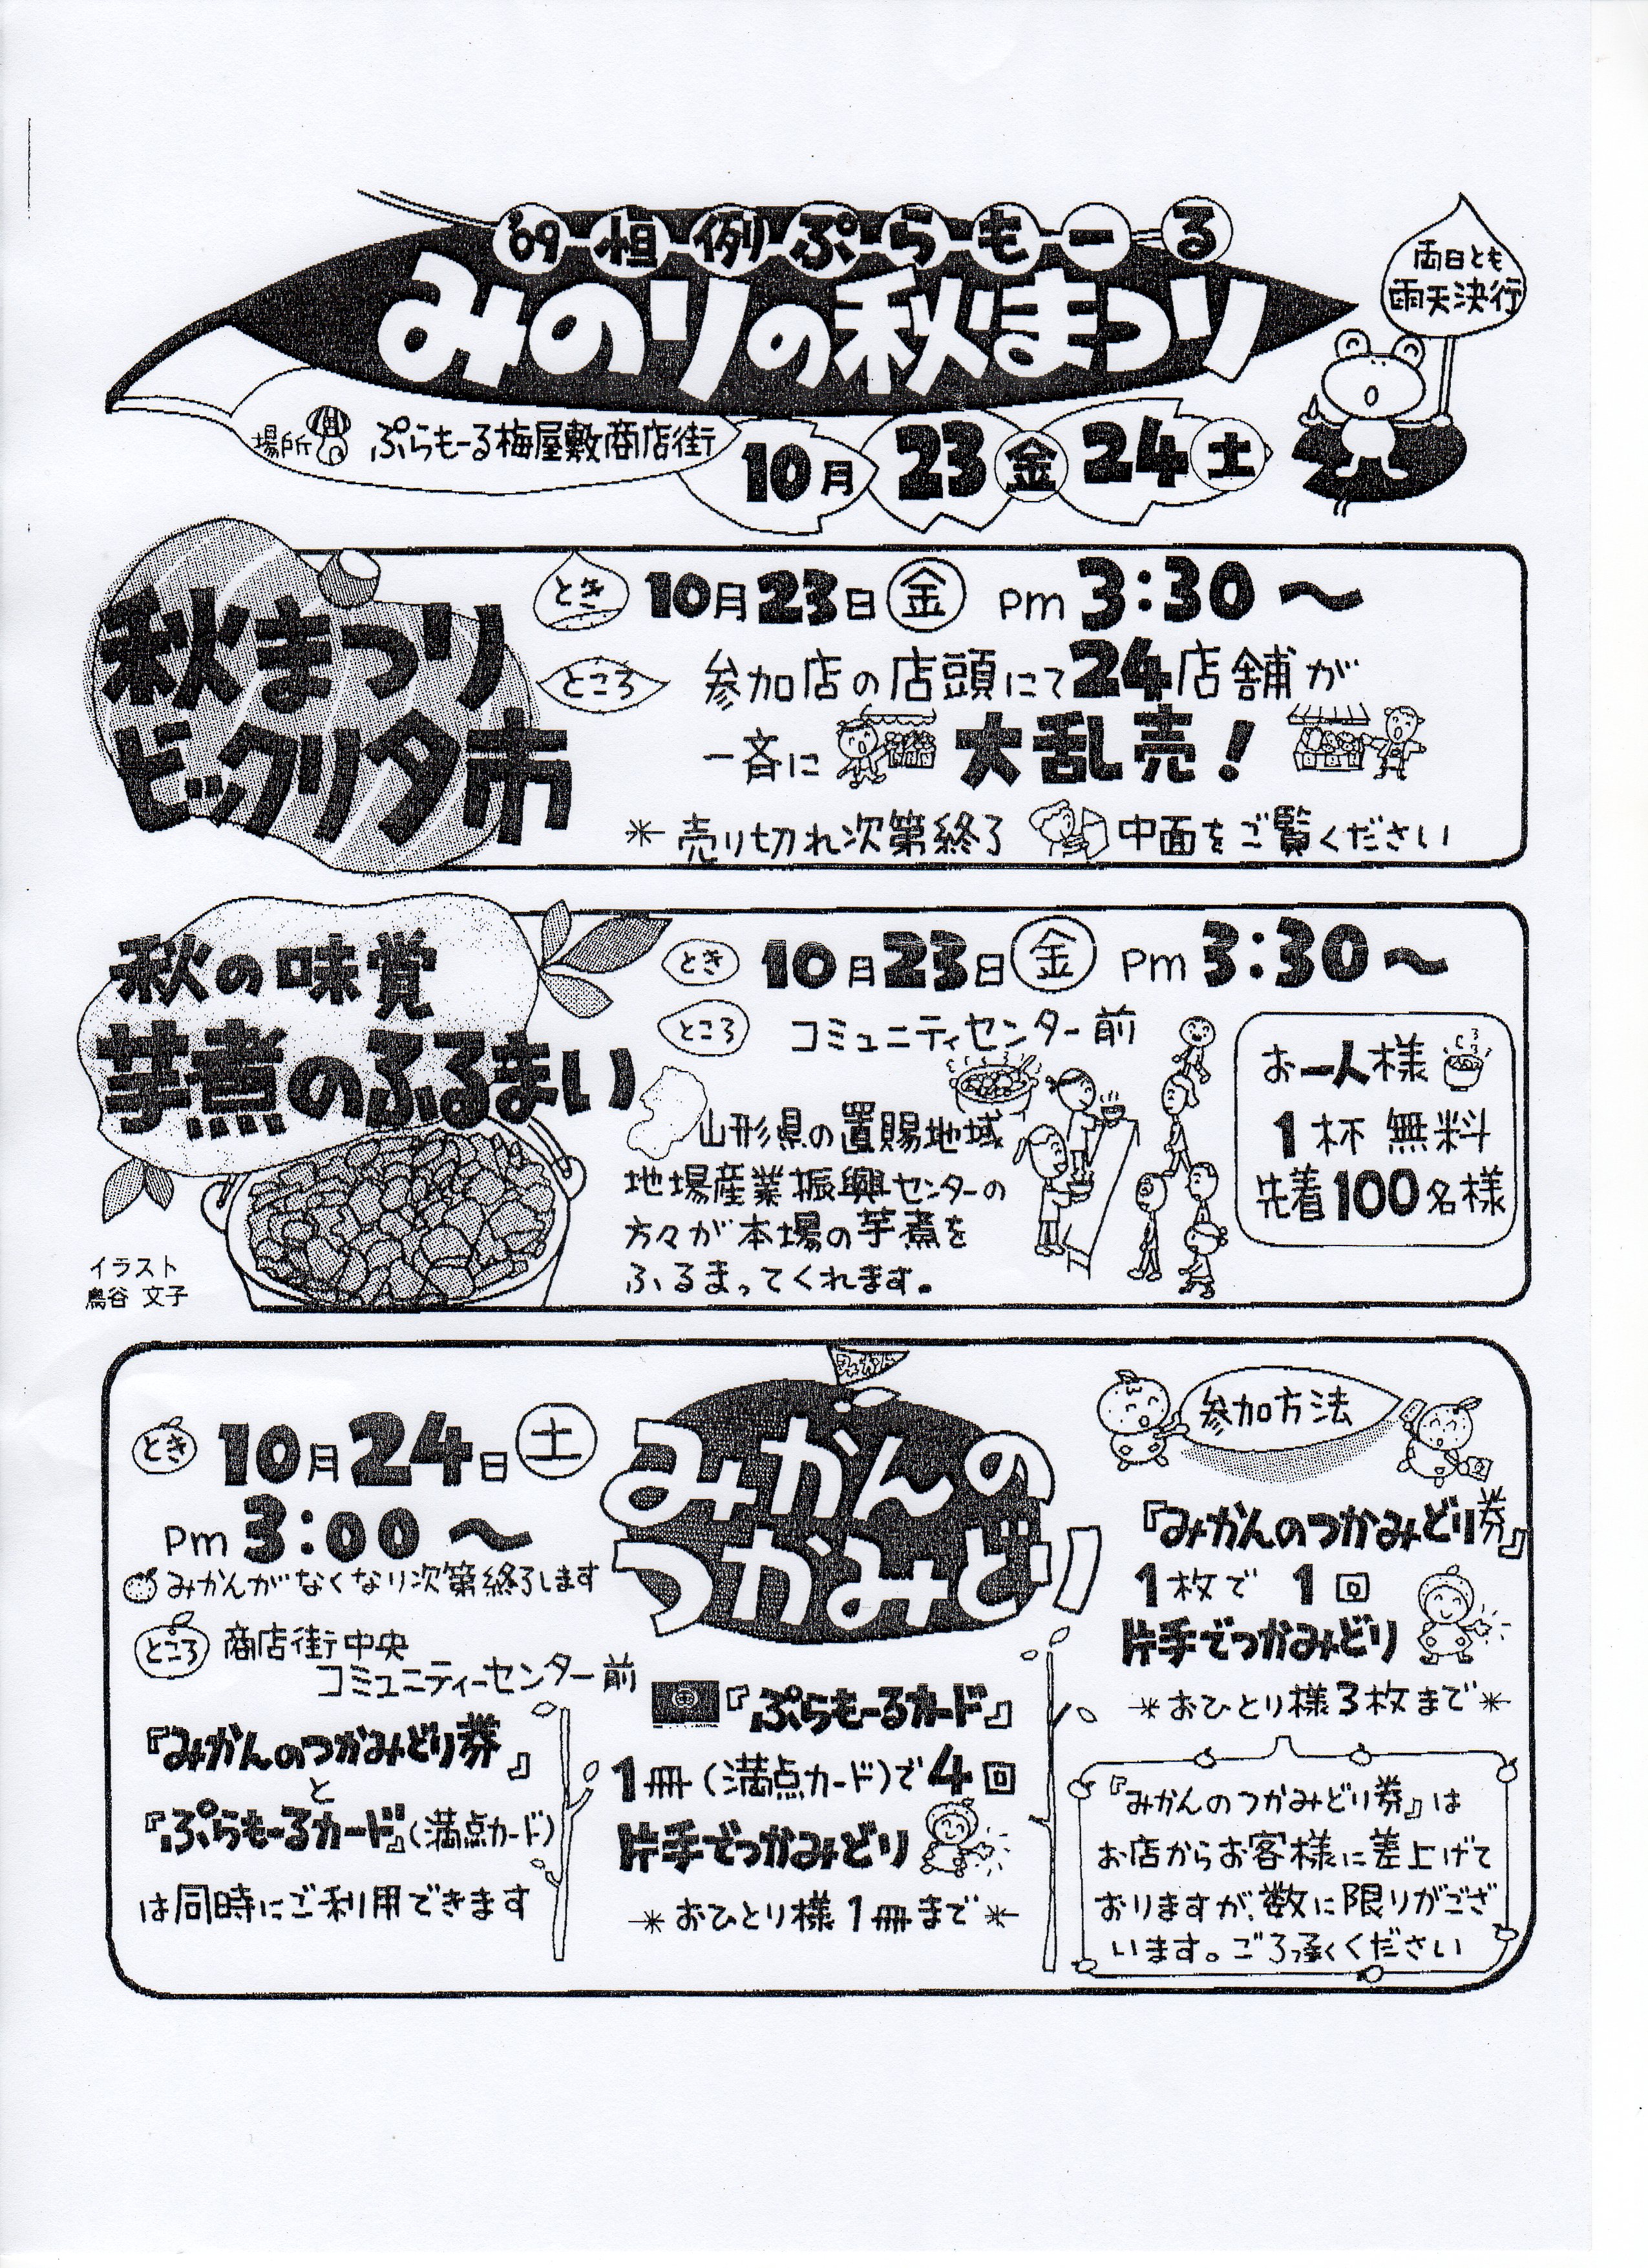 '09恒例ぷらもーる
みのりの秋まつり
両日とも
雨天決行
場所 ぷらもーる梅屋敷商店街
10月 23金 24土
秋まつり
ビックリ夕市
とき 10月23日金 Pm 3:30〜
ところ 参加店の店頭にて24店舗が
一斉に 大乱売!
＊売り切れ次第終了 中面をご覧ください
秋の味覚
芋煮のふるまい
とき 10月23日金 Pm 3:30〜
ところ コミュニティセンター前
山形県の置賜地域
地場産業振興センターの
方々が本場の芋煮を
ふるまってくれます。
お一人様
1杯 無料
先着100名様
イラスト
鳥谷 文子
とき 10月24日土
Pm 3:00〜
みかんがなくなり次第終了します
ところ 商店街中央
コミュニティーセンター前
『みかんのつかみどり券』
と
『ぷらもーるカード』(満点カード)
は同時にご利用できます
みかん
みかんの
つかみどり
『ぷらもーるカード』
1冊(満点カード)で4回
片手でつかみどり
＊おひとり様1冊まで＊
参加方法
『みかんのつかみどり券』
1枚で 1回
片手でつかみどり
＊おひとり様3枚まで＊
『みかんのつかみどり券』は
お店からお客様に差上げて
おりますが、数に限りがござ
います。ご了承ください